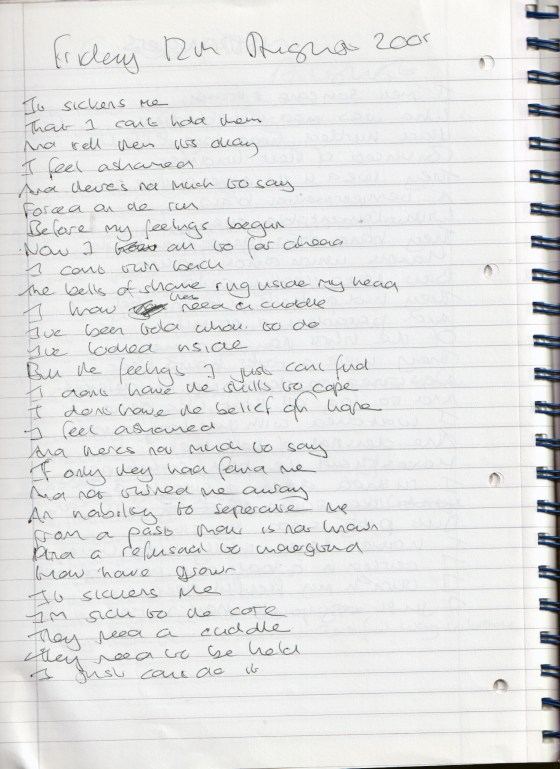 Friday 12th August 2005
It sickens me
That I cant hold them
And tell them its okay
I feel ashamed
And theres not much to say
Forced on the run
Before my feelings begun
Now I am to far ahead
I cant turn back
the bells of shame ring inside my head
I know they need a cuddle
I've been told what to do
I've looked inside
But the feelings I just cant find
I dont have the skills to cope
I dont have the belief of hope
I feel ashamed
And theres not much to say
If only they had found me
And not turned me away
An inability to seperate me
from a past that is not known
And a refusal to understand
how have grown
It sickens me
I'm sick to the core
They need a cuddle
they need to be held
I just cant do it